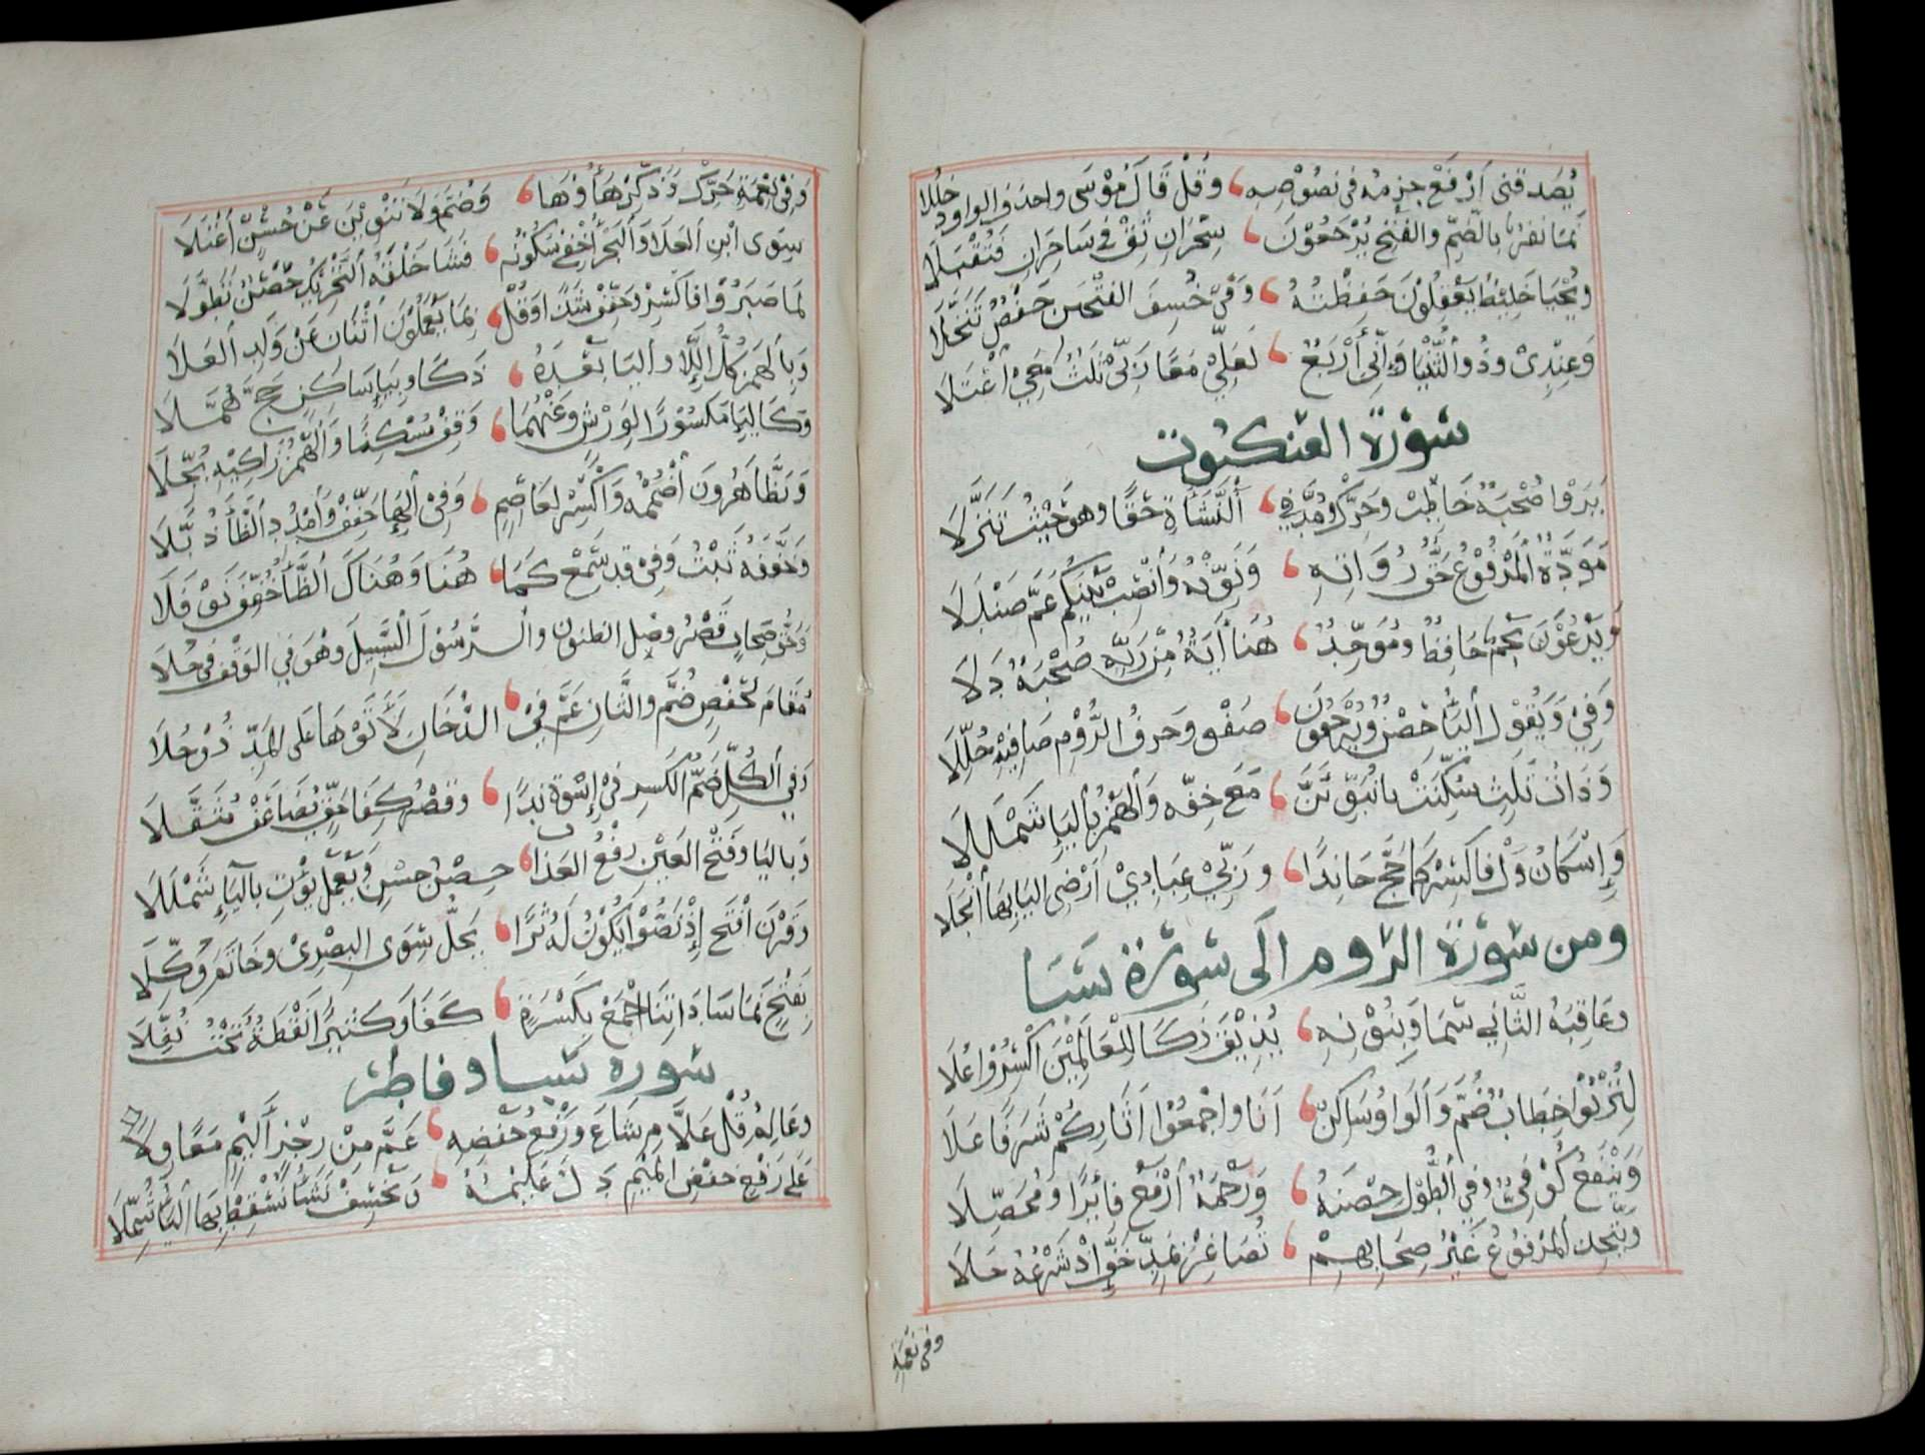 يُصَدِّقني ارْفَعْ جزمه في نصوصه وقل قال موسى واحذف الواو دخللا
نما نفر بالضم والفتح يرجعون سحران ثق في ساحران فتقبلا
ويجبى خليط يعقلون حفظته وفي خسف الفتحين حفص تنخلا
وعندي وذو الثنيا وإني أربع لعلي معا ربي ثلث معي اعتلا
سورة العنكبوت
يروا صحبة خاطب وحرك ومد في النشاءة حقا وهو حيث تنزلا
مودة المرفوع حق رواته ونونه وانصب بينكم عم صندلا
ويدعون نجم حافظ وموحد هنا أية من ربه صحبة دلا
وفي ويقول الياء حصن ويرجعون صفو وحرف الروم صافيه حللا
وذات ثلث سكنت با نبوئن مع خفه والهمز بالياء شمللا
وإسكان ول فاكسر كما حج جا ندا وربي عبادي أرضي اليا بها انجلا
ومن سورة الروم الى سورة سبا
وعاقبة الثاني سما وبنونه يذيق زكا للعالمين اكسروا علا
لتربوا خطاب ضم والواو ساكن أتا واجمعوا أثار كم شرفا علا
وينفع كوفي وفي الطول حصنه ورحمة ارفع فايزا ومحصلا
ويتخذ المرفوع غير صحابهم تصاعر بمد خف إذ شرعه حلا
وفي نعمة
وفي نعمة حرك وذكر هاؤها وضم ولا تنوين عن حسن اعتلا
سوى ابن العلا والبحر أخفي سكونه فشا خلقه التحريك حصن تطولا
لما صبروا فاكسر وخفف شذا وقل بما يعملون اثنان عن ولد العلا
وبالهمز كل اللا واليا بعده ذكا وبياء ساكن حج هملا
وكاليا مكسورا لورش وعنهما وقف مسكنا والهمز زاكيه بجلا
وتظاهرون اضممه واكسر لعاصم وفي الهاء خفف وامدد الظاء ذبلا
وخففه ثبت وفي قد سمع كما هنا وهناك الظاء خفف نوفلا
وحق صحاب قصر وصل الظنون والرسول السبيل وهو في الوقف في حلا
مقام لحفص ضم والثان عم في الدخان لأتوها على المد ذو حلا
وفي الكل ضم الكسر في إسوة ندا وقصر كفا حق يضاعف مثقلا
وباليا وفتح العين رفع العذاب حصن حسن ويعمل يؤت بالياء شمللا
وقرن افتح إذ نصوا يكون له ثرا يحل سوى البصري وخاتم وكلا
بفتح نما ساداتنا اجمع بكسرة كفا وكثيرا نقطة تحت نفلا
سوره سبا وفاطر
وعالم قل علام شاع ورفع خفضه عم من رجز أليم معا ولا
على رفع خفض الميم دل عليمه ونخسف نشأ نسقط بها الياء شمللا